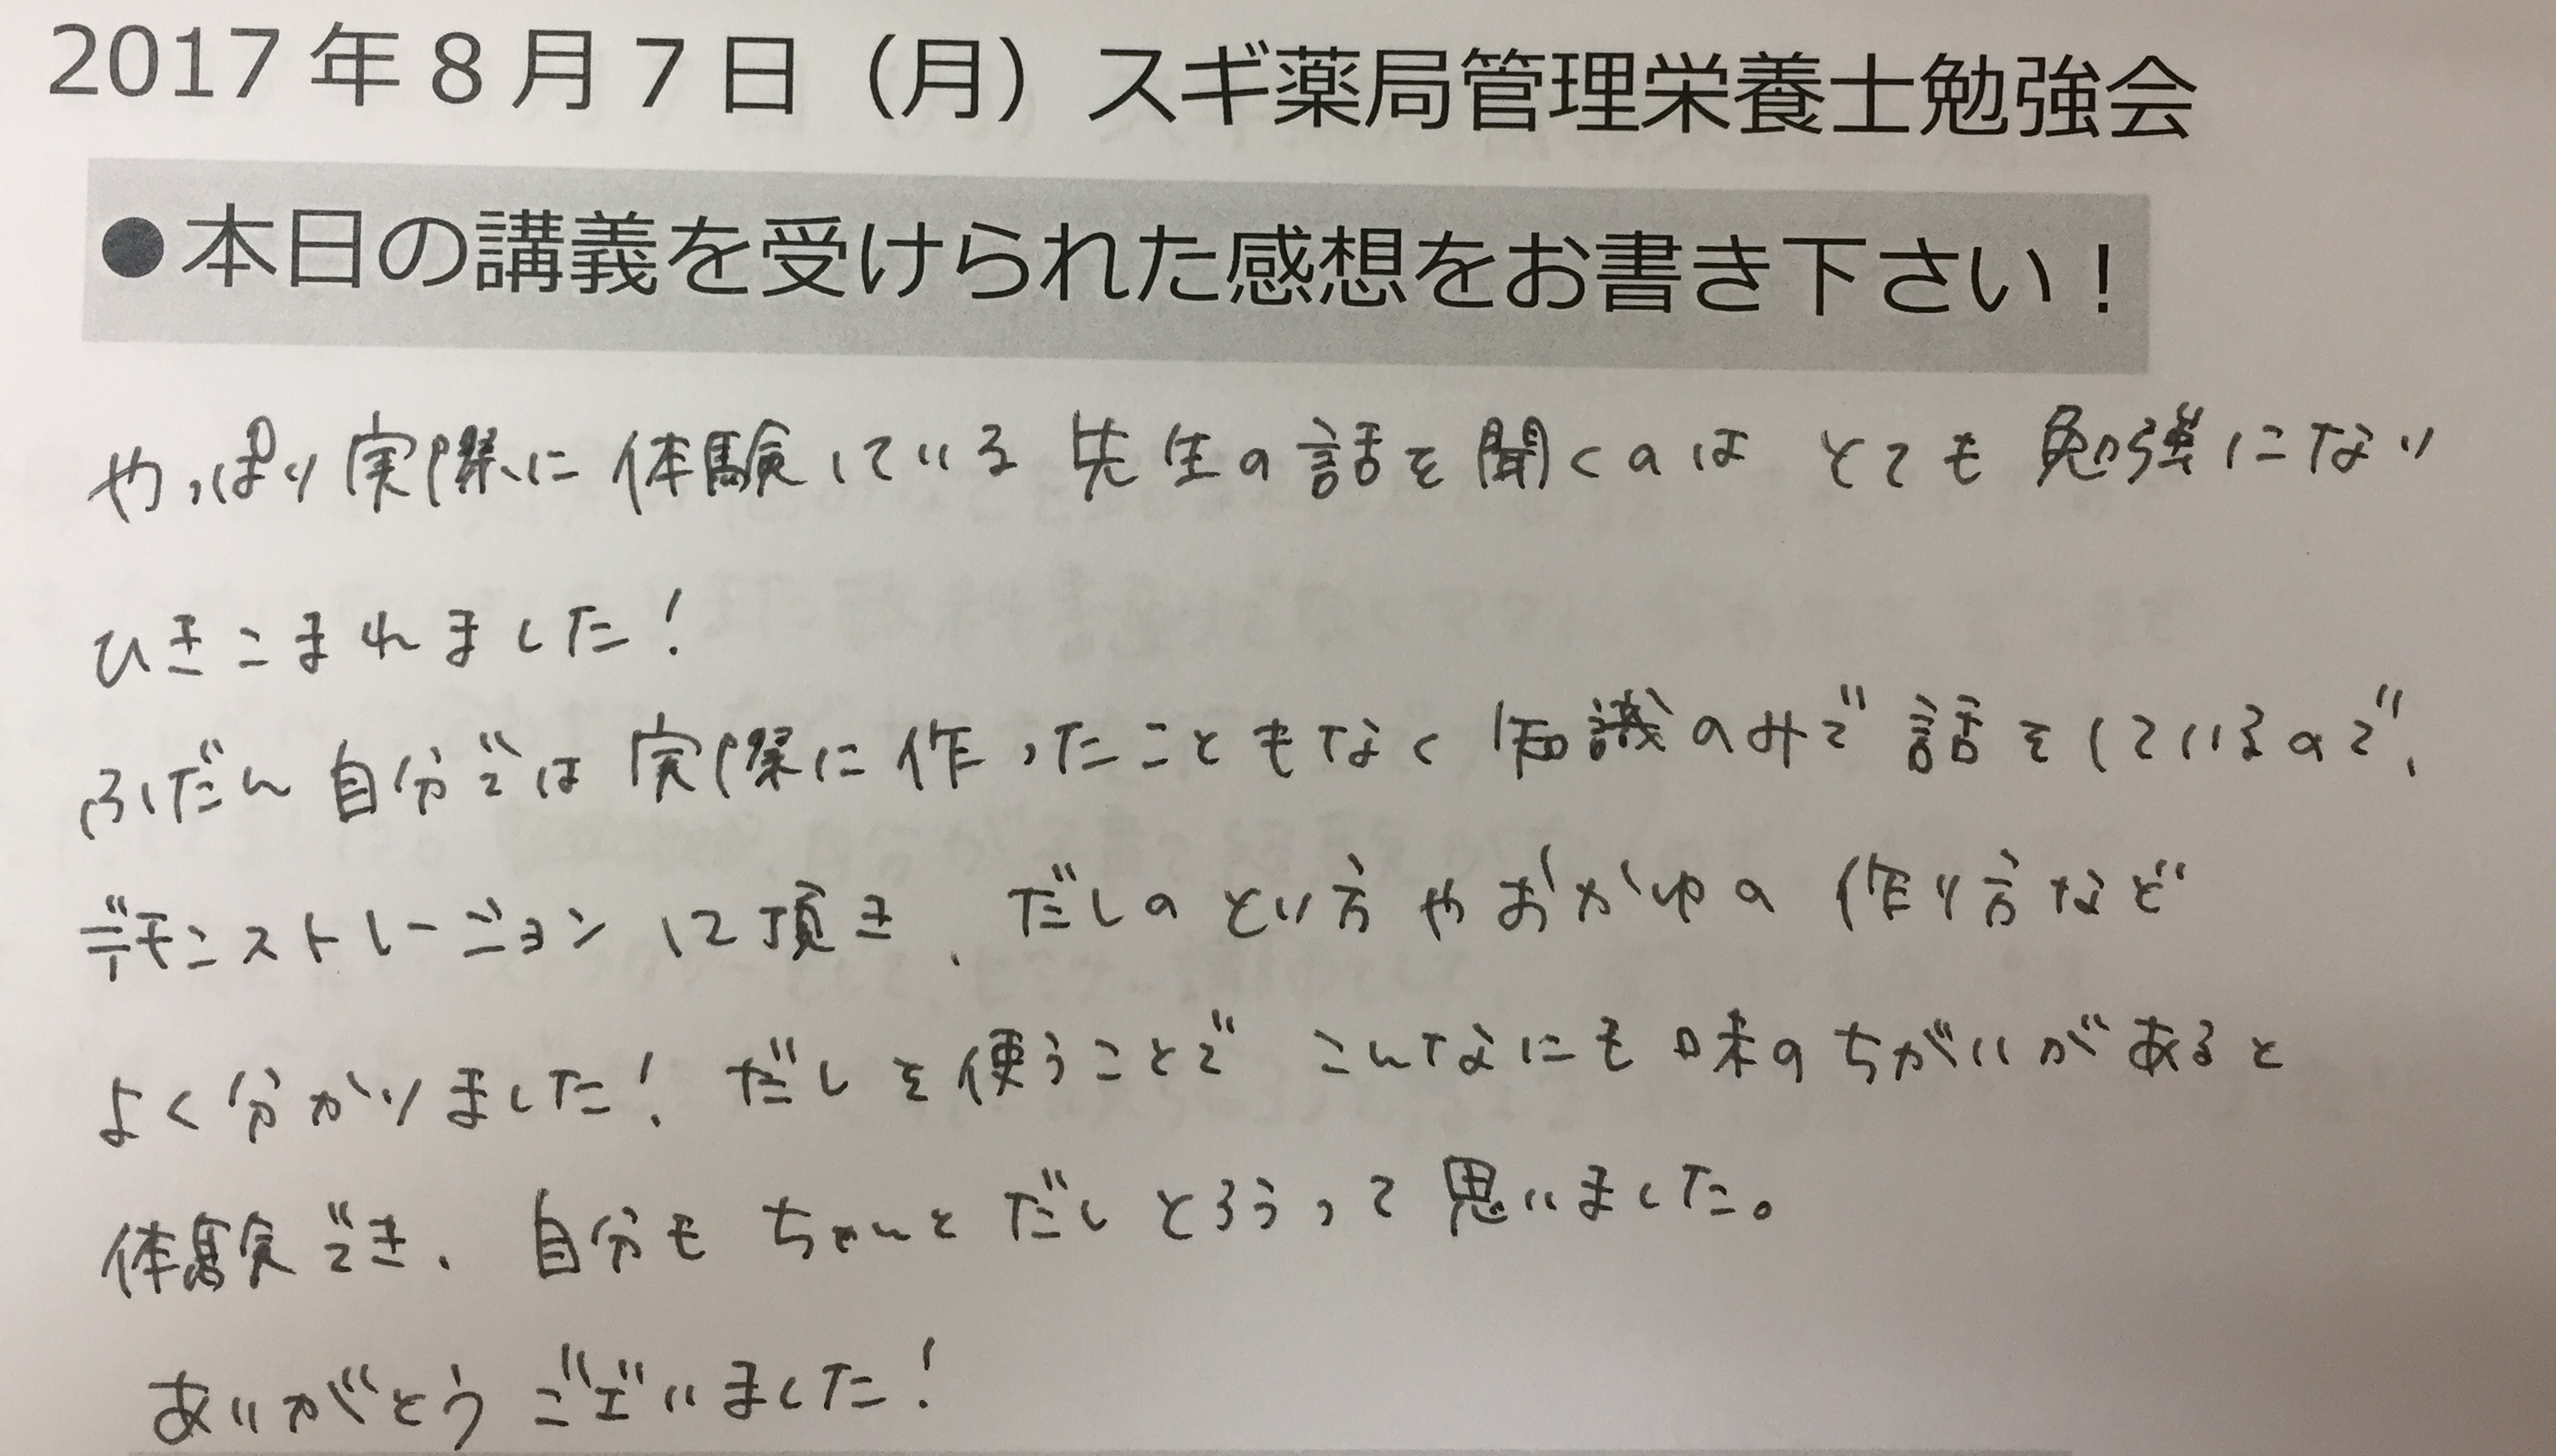 2017年8月7日（月）スギ薬局管理栄養士勉強会
●本日の講義を受けられた感想をお書き下さい！
やっぱり実際に体験している先生の話を聞くのはとても勉強になり
ひきこまれました！
ふだん自分では実際に作ったこともなく知識のみで話をしているので、
デモンストレーションして頂き、だしのとり方やおかゆの作り方など
よく分かりました！だしを使うことでこんなにも味のちがいがあると
体験でき、自分もちゃんとだしとろうって思いました。
ありがとうございました！